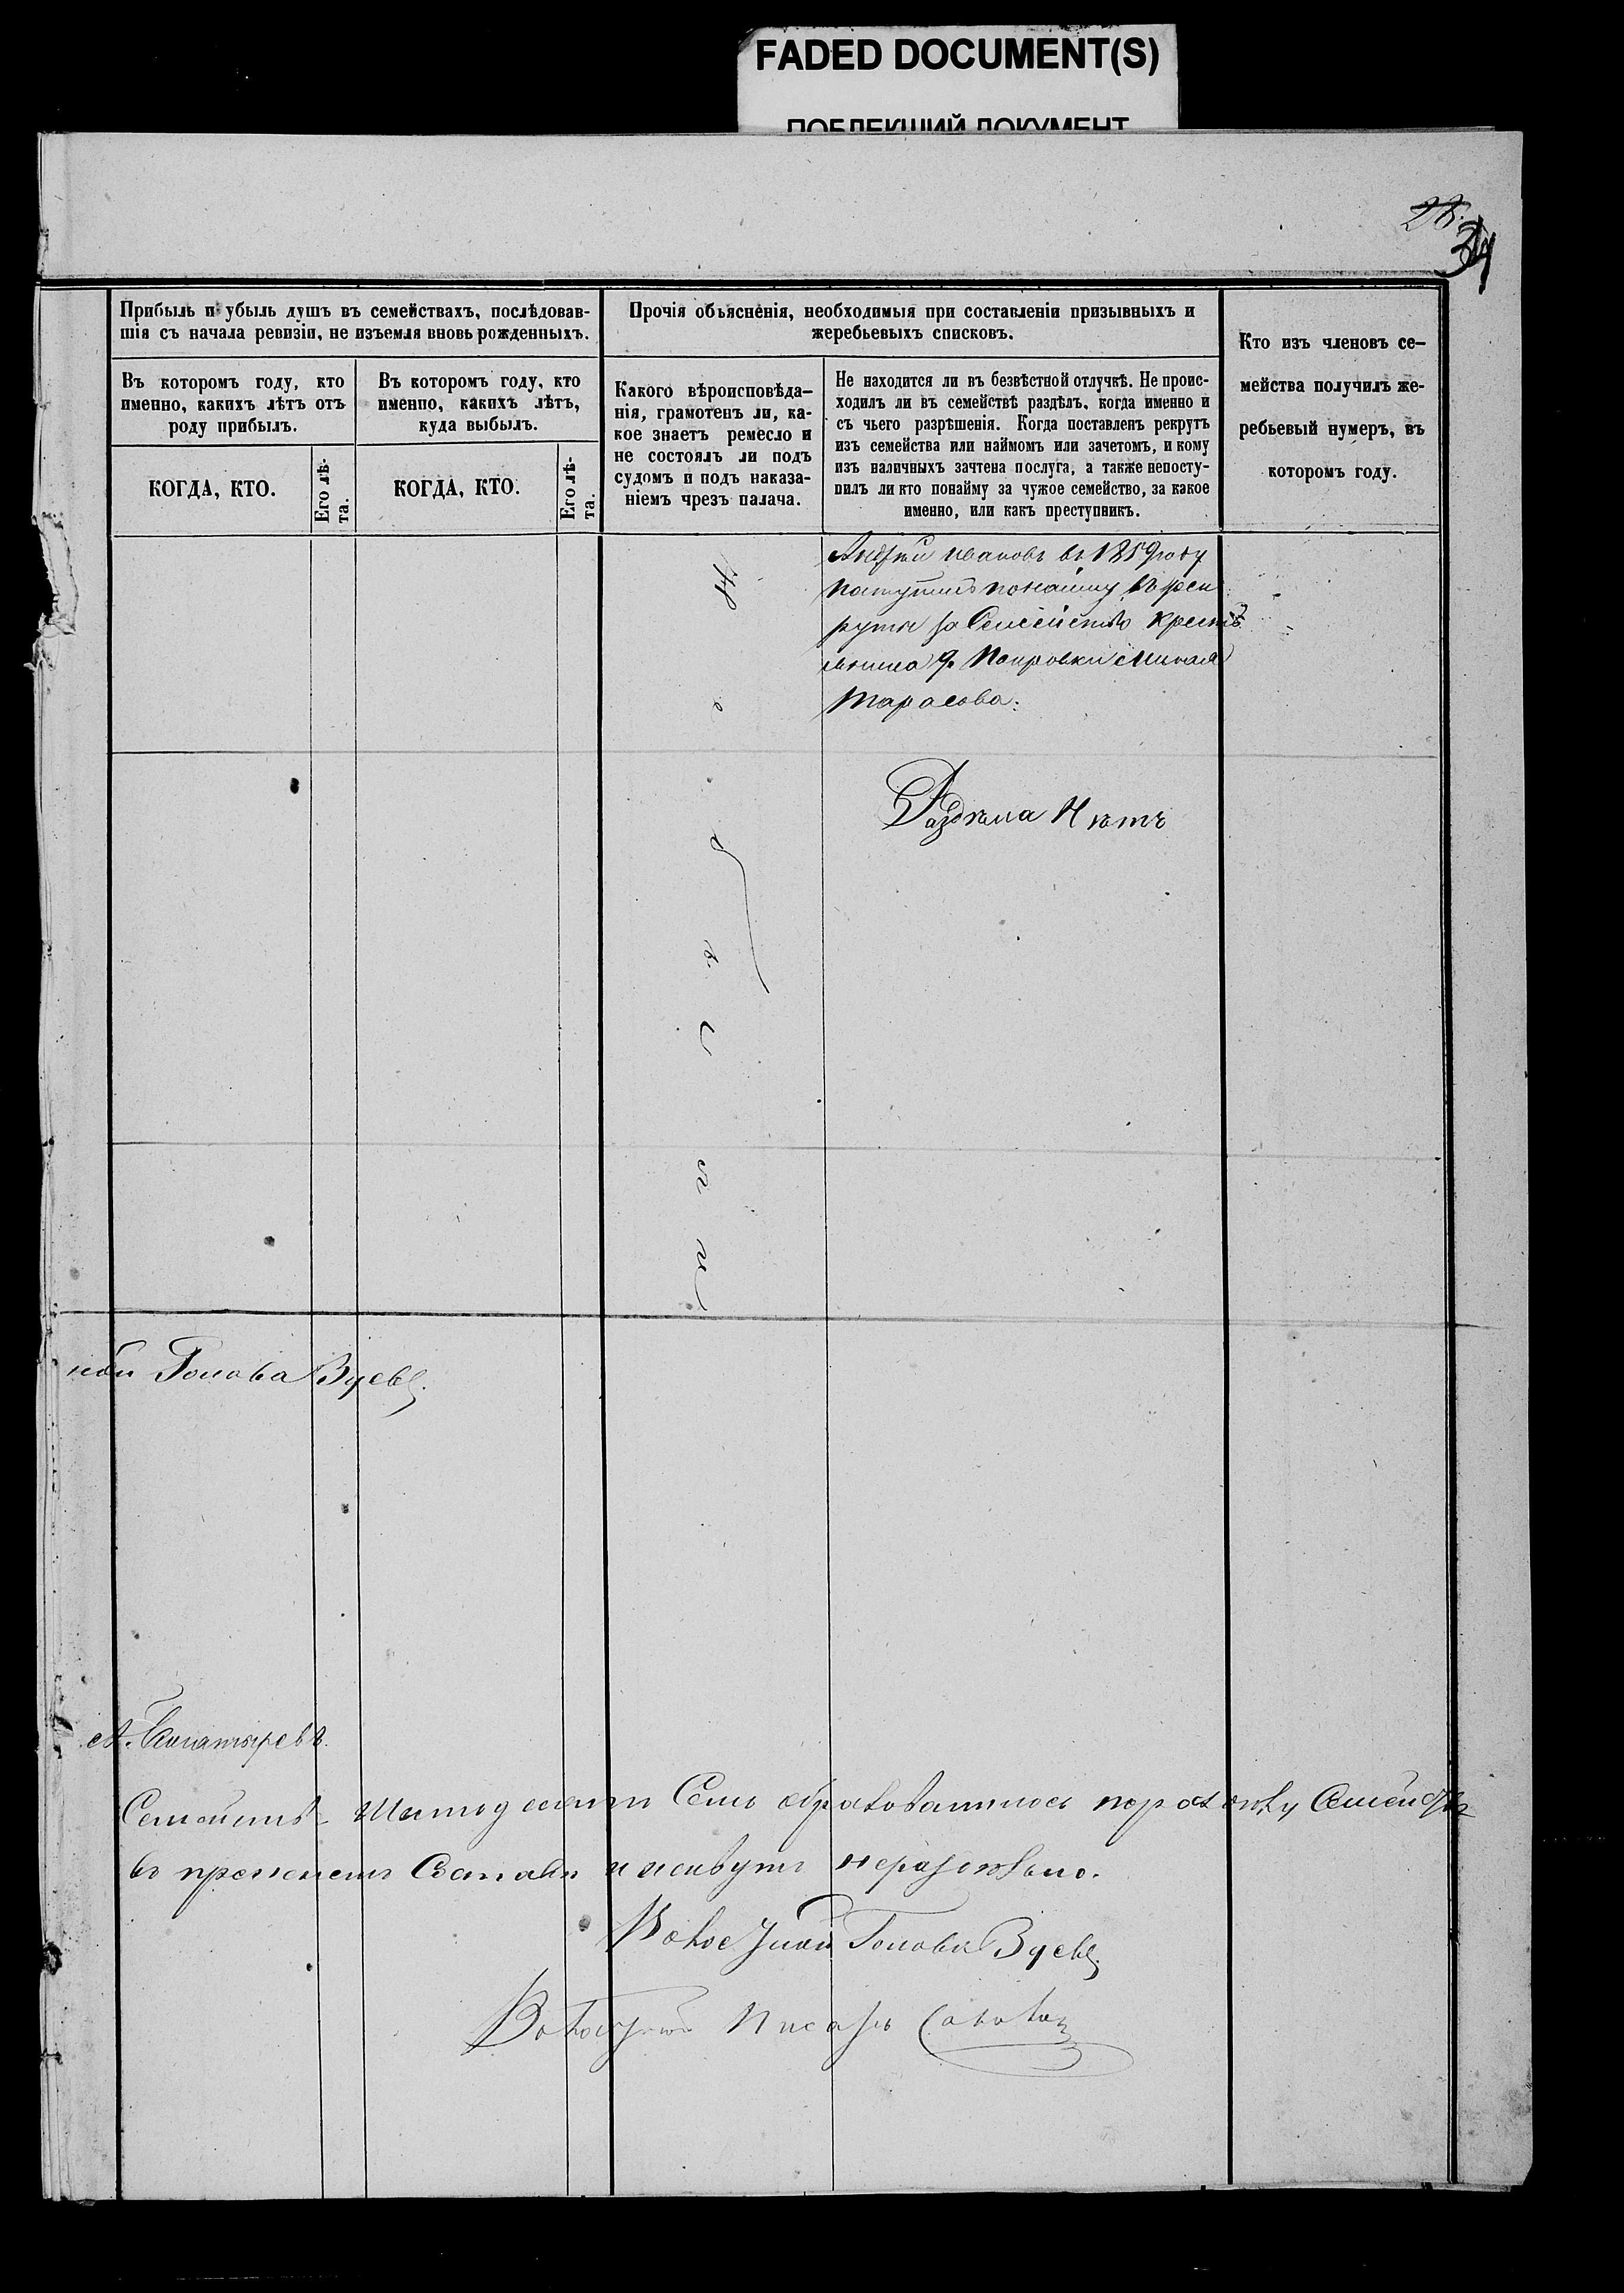 FADED DOCUMENT(S)
ПОБЛЕКШИЙ ДОКУМЕНТ
28.
34
Прибыль и убыль душъ въ семействахъ, послѣдовав-
шія съ начала ревизіи, не изъемля вновь рожденныхъ.
Въ которомъ году, кто
именно, какихъ лѣтъ отъ
роду прибылъ.
КОГДА, КТО.
Его лѣ-
та.
Въ которомъ году, кто
именно, какихъ лѣтъ,
куда выбылъ.
КОГДА, КТО.
Его лѣ-
та.
Прочія объясненія, необходимыя при составленіи призывныхъ и
жеребьевыхъ списковъ.
Какого вѣроисповѣда-
нія, грамотенъ ли, ка-
кое знаетъ ремесло и
не состоялъ ли подъ
судомъ и подъ наказа-
ніемъ чрезъ палача.
Не находится ли въ безвѣстной отлучкѣ. Не проис-
ходилъ ли въ семействѣ раздѣлъ, когда именно и
съ чьего разрѣшенія. Когда поставленъ рекрутъ
изъ семейства или наймомъ или зачетомъ, и кому
изъ наличныхъ зачтена послуга, а также непосту-
пилъ ли кто понайму за чужое семейство, за какое
именно, или какъ преступникъ.
Кто изъ членовъ се-
мейства получилъ же-
ребьевый нумеръ, въ
которомъ году.
Андрей Ивановъ въ 1859 году
поступилъ понайму въ рек
руты за Семейство Кресть
янина д. Покровки Миная
Тарасова.
Раздѣла Нѣтъ
ной Голова Зуевъ
Семь образовалось
въ прежнемъ Составѣ и живутъ нераздѣльно.
Волостной Голова Зуевъ
Волостной Писарь